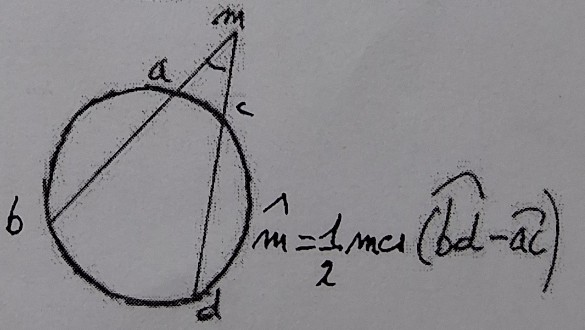 m
a
c
b
m̂ = 1/2 mes (b͡d - a͡c)
d